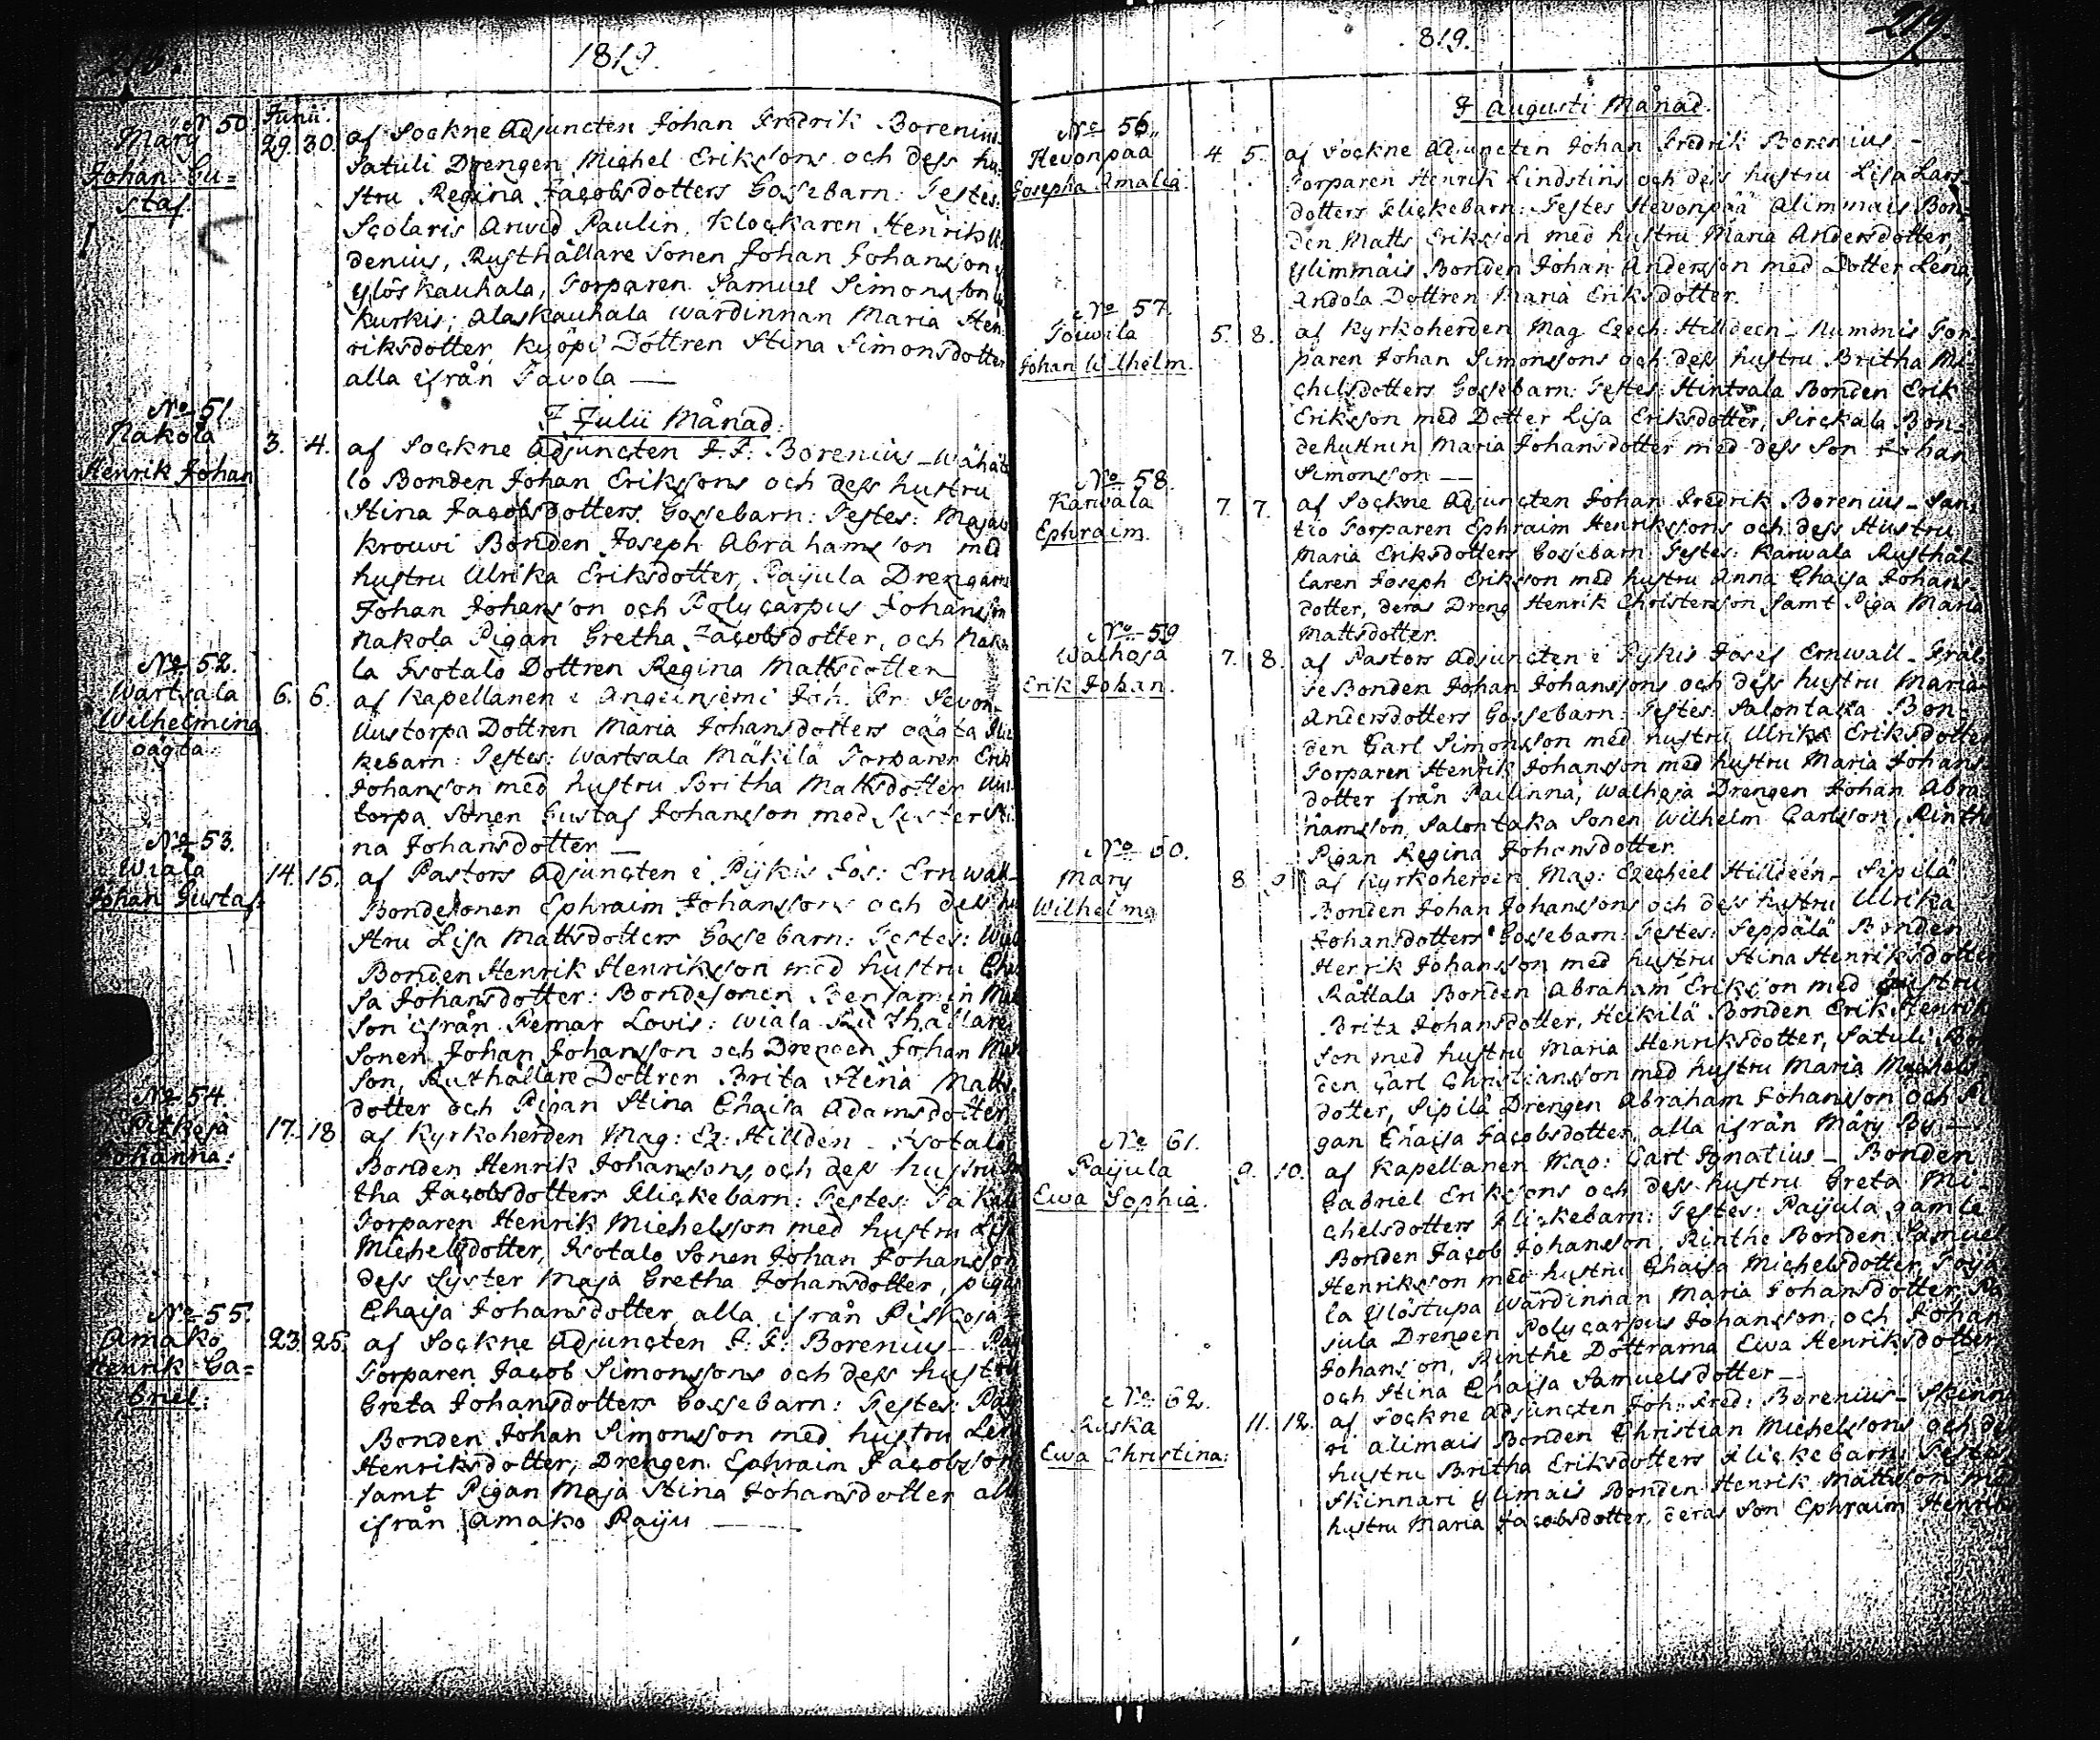 218.
1819.
N 50.
Märy
Johan Gu=
staf.
Junii.
29. 30. af Sockne Adjuncten Johan Fredrik Borenius
Satuli Drengen Michel Erikssons och dess hu=
stru Regina Jacobsdotters Gossebarn: Testes:
Scolaris Arvid Paulin, Klockaren Henrik
denius, Rusthållare Sonen Johan Johansson
Ylöskauhala, Torparen Samuel Simonsson
Kurkis; Alaskauhala Wärdinnan Maria Hen
riksdotter, Kyöpi Dottren Stina Simonsdotter
alla ifrån Tavola —
I Julii Månad.
No 51.
Nakola
Henrik Johan
3. 4. af Sockne Adjuncten J. F: Borenius – Wähäta
lo Bonden Johan Erikssons och dess hustru
Stina Jacobsdotters Gossebarn: Testes:
Krouvi Bonden Joseph Abrahamsson med
hustru Ulrika Eriksdotter, Paijula Drengarne
Johan Johansson och Polycarpus Johansson
Nakola Pigan Gretha Jacobsdotter, och Nako
la Isotalo Dottren Regina Mattsdotter
No 52.
Wartsala
Wilhelmina
oägta.
6. 6. af Kapellanen i Angelniemi Joh. Fr. Sevon
Uustorpa Dottren Maria Johansdotters oägta Flic
kebarn: Testes: Wartsala Mäkilä Torparen Erik
Johansson med hustru Britha Mattsdotter Uus
torpa Sonen Gustaf Johansson med Syster Sti
na Johansdotter —
No 53.
Wiala
Johan Gustaf:
14. 15. af Pastors Adjuncten i Pijkis Jos: Ernwall –
Bondesonen Ephraim Johanssons och dess hu
stru Lisa Mattsdotters Gossebarn: Testes: Wiala
Bonden Henrik Henriksson med hustru Chai
sa Johansdotter: Bondesonen Benjamin Matts
son ifrån Pemar Lovis: Wiala Rusthållare
Sonen Johan Johansson och Drengen Johan
son, Rusthållare Dottren Brita Stina Matts
dotter och Pigan Stina Chaisa Adamsdotter
No 54.
Pitkeja
Johanna:
17. 18. af Kyrkoherden Mag: Ez: Hilldén – Isotalo
Bonden Henrik Johanssons, och dess hustru
tha Jacobsdotters Flickebarn: Testes:
Torparen Henrik Michelsson med hustru Lisa
Michelsdotter, Isotalo Sonen Johan Johansson
dess Syster Maja Gretha Johansdotter, pigan
Chaisa Johansdotter, alla ifrån Pitkeja –
No 55.
Amakö
Henrik Ga=
briel:
23. 25. af Sockne Adjuncten J. F: Borenius –
Torparen Jacob Simonssons och dess hustru
Greta Johansdotters Gossebarn: Testes:
Bonden Johan Simonsson med hustru Lena
Henriksdotter, Drengen Ephraim Jacobsson
samt Pigan Maja Stina Johansdotter alla
ifrån Amako Paiju —
219.
819.
I Augusti Månad.
No 56.
Hevonpaa
Josepha Amalia.
4. 5. af Sockne Adjuncten Johan Fredrik Borenius –
Torparen Henrik Lindstins och dess hustru Lisa Lars
dotters Flickebarn: Testes Hevonpää Alimmais Bon=
den Matts Eriksson med hustru Maria Andersdotter,
Ylimmäis Bonden Johan Andersson med Dotter Lena,
Andola Dottren Maria Eriksdotter.
No 57.
Toivila
Johan Wilhelm.
5. 8. af Kyrkoherden Mag Ezech: Hilldeen – Nummis Tor=
paren Johan Simonssons och dess hustru Britha Mi=
chelsdotters Gossebarn: Testes: Hintsala Bonden Erik
Eriksson med Dotter Lisa Eriksdotter, Sirckala Bon=
dehustrun Maria Johansdotter med dess Son Johan
Simonsson —
No 58.
Karvala
Ephraim.
7. 7. af Sockne Adjuncten Johan Fredrik Borenius – San
tio Torparen Ephraim Henrikssons och dess Hustru
Maria Eriksdotters Gossebarn: Testes: Karwala Rusthål
laren Joseph Eriksson med hustru Anna Chaisa Johans
dotter, deras Dreng Henrik Christersson samt Piga Maria
Mattsdotter.
No 59
Walhoja
Erik Johan.
7. 8. af Pastors Adjuncten i Pijkis Josef Ernwall – Fräl
se Bonden Johan Johanssons och dess hustru Maria
Andersdotters Gossebarn: Testes: Salontaka Bon=
den Carl Simonsson med hustru Ulrika Eriksdotter
Torparen Henrik Johansson med hustru Maria Johans
dotter från Pailinna, Walhoja Drengen Johan Abra
hamsson, Salontaka Sonen Wilhelm Carlsson, Rinthe
Pigan Regina Johansdotter.
No 60.
Mary
Wilhelm
8. 9. af Kyrkoherden Mag: Ezechiel Hilldéen – Sipilä
Bonden Johan Johanssons och dess hustru Ulrika
Johansdotters Gossebarn: Testes: Seppälä Bonden
Henrik Johansson med hustru Stina Henriksdotter
Råttala Bonden Abraham Eriksson med hustru
Brita Johansdotter, Heikilä Bonden Erik Henriks
son med hustru Maria Henriksdotter, Satuli Bon
den Carl Christiansson med hustru Maria Michels
dotter, Sipilä Drengen Abraham Johansson och Pi
gan Chaisa Jacobsdotter, alla ifrån Märy By –
No 61.
Paijula
Ewa Sophia.
9. 10. af Kapellanen Mag: Carl Ignatius – Bonden
Gabriel Erikssons och dess hustru Greta Mi=
chelsdotters Flickebarn: Testes: Paijula gamle
Bonden Jacob Johansson, Rinthe Bonden Samuel
Henriksson med hustru Chaisa Michelsdotter,
la Ylöstupa Wärdinnan Maria Johansdotter, Pai
jula Drengen Polycarpus Johansson, och Johan
Johansson, Rinthe Döttrarna Ewa Henriksdotter
och Stina Chaisa Samuelsdotter —
No 62.
Ruska
Ewa Christina:
11. 12. af Sockne Adjuncten Joh: Fred: Borenius – Skinna
ri Alimais Bonden Christian Michelssons och dess
hustru Britha Eriksdotters Flickebarn: Testes
Skinnari Ylimais Bonden Henrik Mattsson med
hustru Maria Jacobsdotter, deras Son Ephraim Henriks